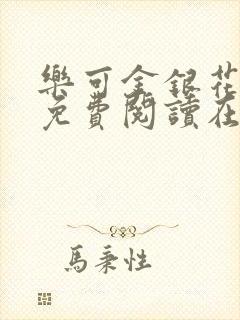 樂可金銀花
免費閱讀在
馬秉性